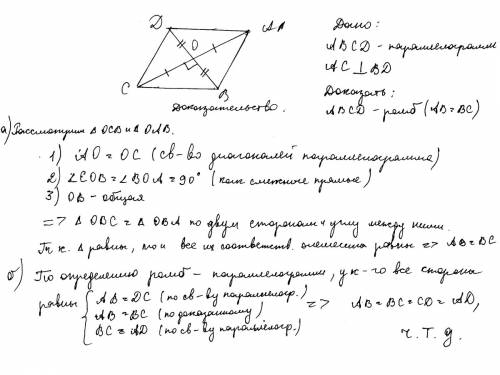 D
A
O
C
B
Дано:
ABCD - параллелограмм
AC ⊥ BD
Доказать:
ABCD - ромб (AB = BC)
Доказательство.
а) Рассмотрим Δ OCB и Δ OAB.
1) AO = OC (св-во диагоналей параллелограмма)
2) ∠COB = ∠BOA = 90° (как смежные прямые)
3) OB - общая
=> Δ OBC = Δ OBA по двум сторонам и углу между ними.
Т.к. Δ равны, то и все их соответств. элементы равны => AB = BC
б) По определению ромб - параллелограмм, у к-го все стороны
равны { AB = DC (по св-ву параллелогр.)
AB = BC (по доказанному) => AB = BC = CD = AD,
BC = AD (по св-ву параллелогр.)
ч.т.д.